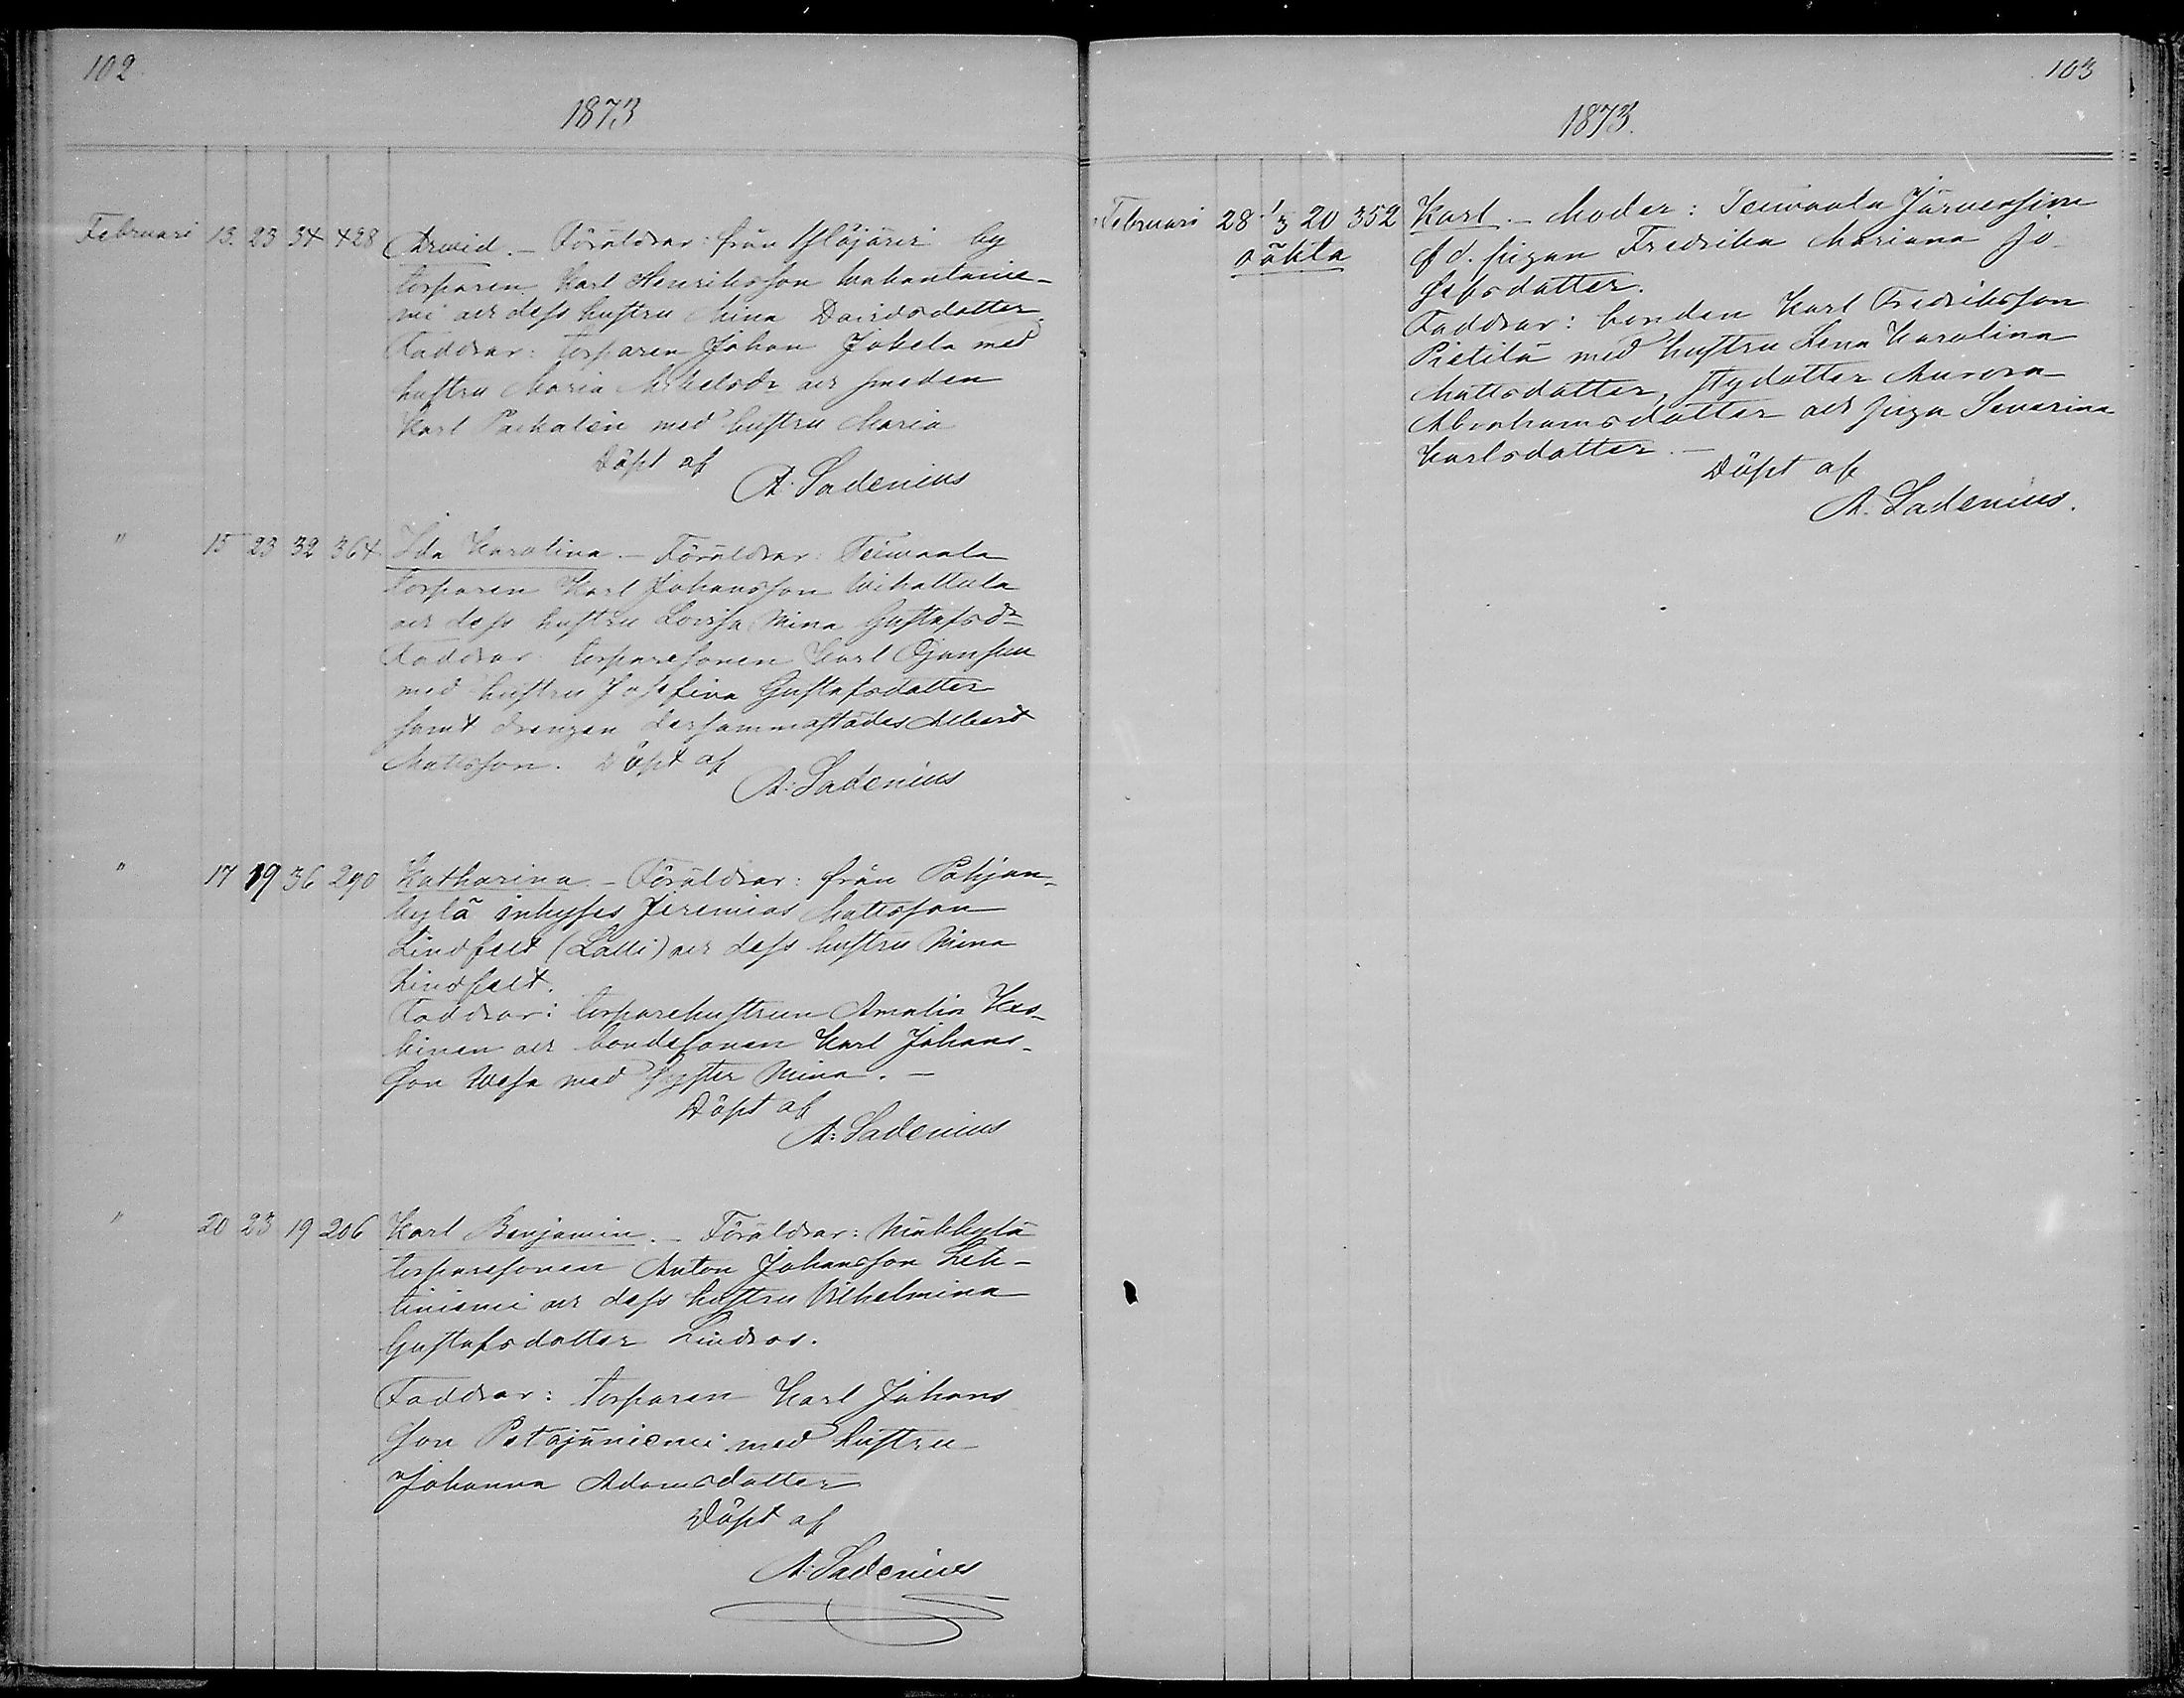 102
1873
Februari 13. 23 34 428 Arvid. – Föräldrar: från Ylöjärvi by
torparen Karl Henriksson
mi och dess hustru Mina Davidsdotter.
Faddrar: torparen Johan Jokela med
hustru Maria Mikelsdr och smeden
Karl med hustru Maria
Döpt af
A. Ladenius
" 15 23 32 364 Ida Karolina. – Föräldrar:
torparen Karl Johansson
och dess hustru Lovisa Mina Gustafsdr
Faddrar: torparesonen Karl
med hustru Josefina Gustafsdotter
samt drengen dersammastädes Albert
Mattsson. Döpt af
A. Ladenius
" 17 19 36 290 Katharina. – Föräldrar: från Pohjan-
kylä inhyses Jeremias Mattsson
Lindfelt (Lälli) och dess hustru Mina
Lindfelt.
Faddrar: torparehustrun Amalia Kes-
kinen och bondesonen Karl Johans-
son Wesa med syster Mina. –
Döpt af
A. Ladenius
" 20 23 19 206 Karl Benjamin. – Föräldrar: Mäkkylä
torparesonen Anton Johansson Leh-
tiniemi och dess hustru Vilhelmina
Gustafsdotter Lindros.
Faddrar: torparen Karl Johans
son Petäjäniemi med hustru
Johanna Adamsdotter
Döpt af
A. Ladenius
103
1873.
Februari 28 1/3 20 352 Karl. – Moder: Järvensivu
oäkta
f d. pigan Fredrika Mariana Jo-
sefsdotter.
Faddrar: bonden Karl Fredriksson
Pietilä med hustru Lena Karolina
Mattsdotter, styfdotter Aurora
Abrahamsdotter och piga Severina
Karlsdotter. –
Döpt af
A. Ladenius.